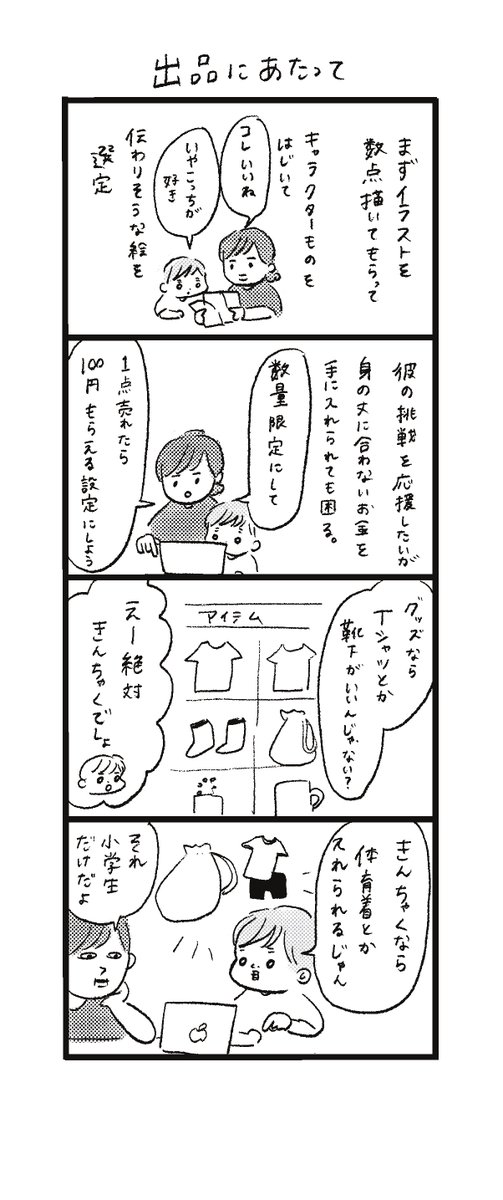 出品にあたって
まずイラストを
数点描いてもらって
キャラクターものを
はじいて
コレいいね
いやこっちが
好き
伝わりそうな絵を
選定
彼の挑戦を応援したいが
身の丈に合わないお金を
手に入れられても困る。
数量限定にして
1点売れたら
100円もらえる設定にしよう
グッズなら
Tシャツとか
靴下がいいんじゃない?
アイテム
えー絶対
きんちゃくでしょ
きんちゃくなら
体育着とか
入れられるじゃん
それ
小学生
だけだよ